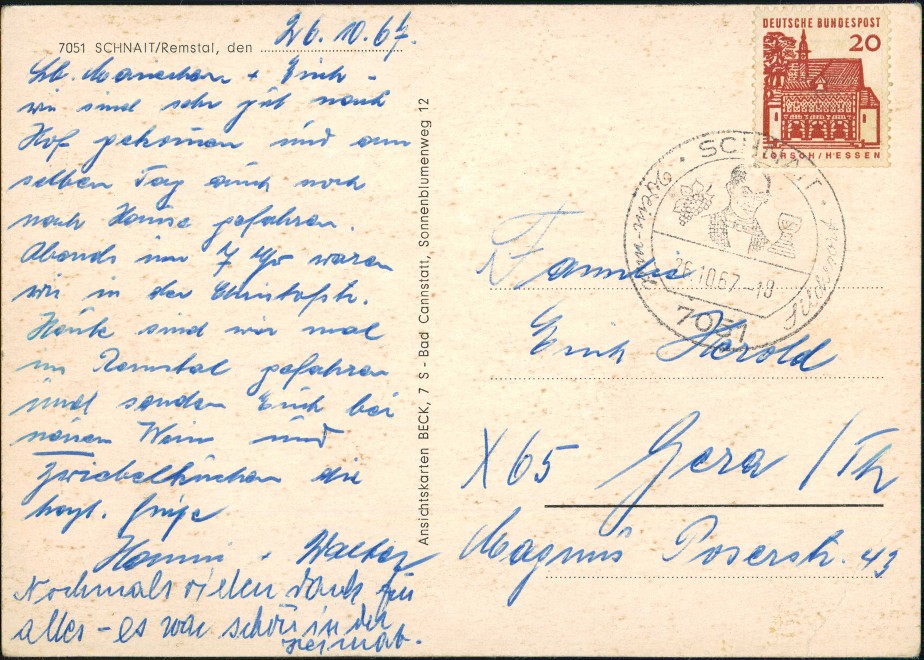 7051 SCHNAIT/Remstal, den 26.10.67.
Lb. Mariechen + Erich -
wir sind sehr gut nach
Hof gekommen und am
selben Tag auch noch
nach Hause gefahren.
Abends um 7 Uhr waren
wir in der Christophstr.
Heute sind wir mal
im Remstal gefahren
und senden Euch bei
neuen Wein und
Zwiebelkuchen die
herzl. Grüße
Hanni + Walter
Nochmals vielen Dank für
alles - es war schön in der
Heimat.
Ansichtskarten BECK, 7 S - Bad Cannstatt, Sonnenblumenweg 12
DEUTSCHE BUNDESPOST
20
LORSCH/HESSEN
SCHNAIT
Wein- und
Silcherort
26.10.67-18
7051
Familie
Erich Herold
X65 Gera /Th
Magnus Poserstr. 43